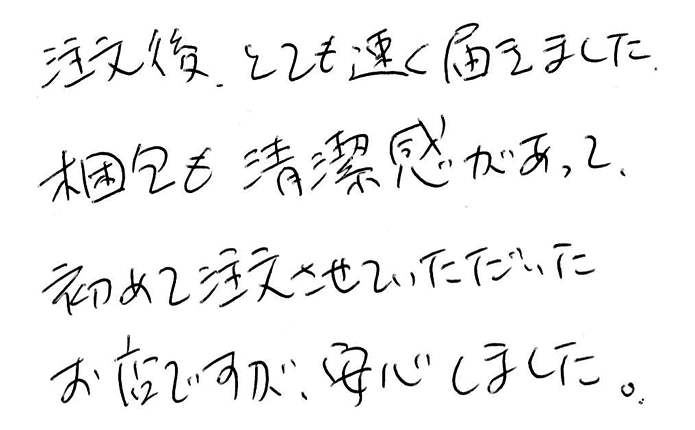 注文後、とても速く届きました。
梱包も清潔感があって、
初めて注文させていただいた
お店ですが、安心しました。